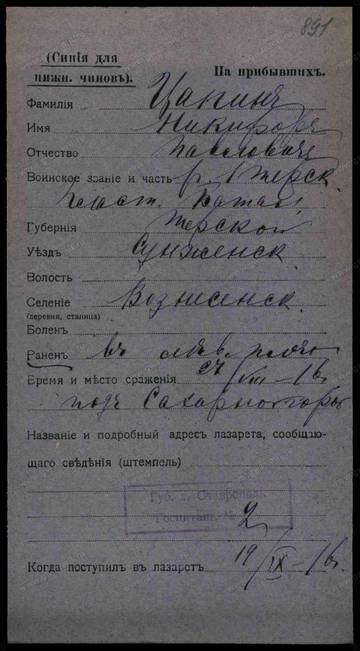 891
(Синія для
нижн. чиновъ).
На прибывшихъ.
Фамилія Цапинъ
Имя Никифоръ
Отчество Павловичъ
Воинское званіе и часть р. 1 Терск.
Пласт. Батал.
Губернія Терской
Уѣздъ Сунженск
Волость
Селеніе Вознесенск.
(деревня, станица)
Боленъ
Раненъ въ лѣв. плечо
Время и мѣсто сраженія VIII—16
подъ Сахарной горы
Названіе и подробный адресъ лазарета, сообщаю-
щаго свѣдѣнія (штемпель)
Губ. г. Ставрополь
Госпиталь №
2
Когда поступилъ въ лазаретъ 19/IX—16 г.